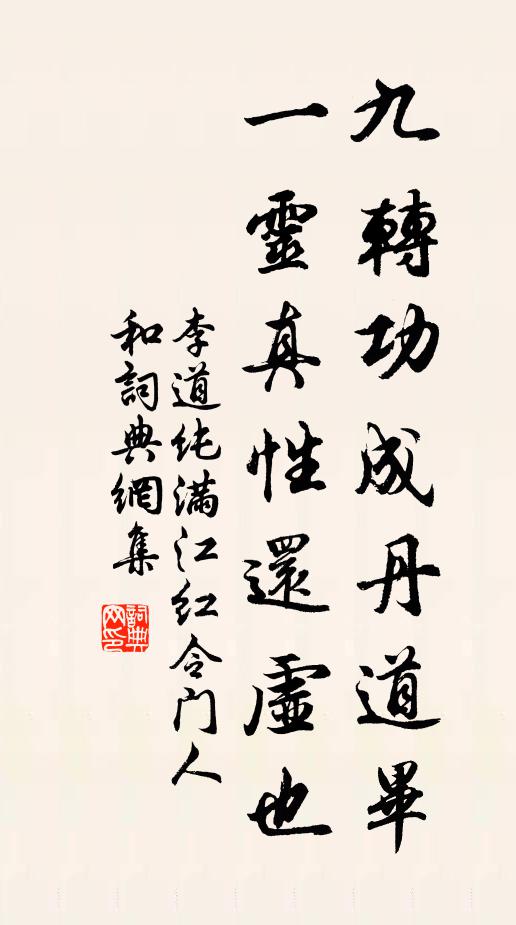 九轉功成丹道畢
一靈真性還虛也
李道纯满江红令门人
和詞典網集
詞典網印